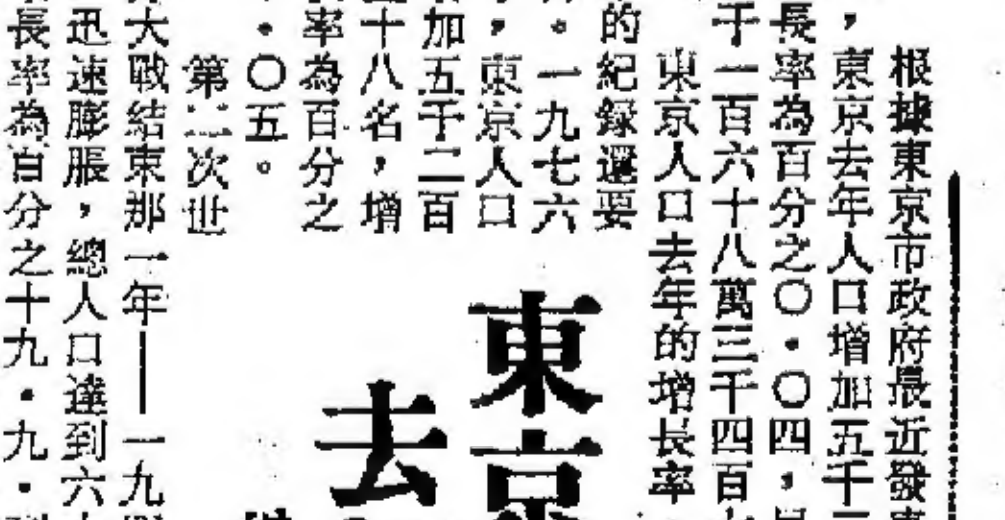 根據東京市政府最近發
，東京去年人口增加五千
長率為百分之〇・〇四，
千一百六十八萬三千四百
東京人口去年的增長率
的紀錄還要
。一九七六
，東京人口
加五千二百
十八名，增
率為百分之
・〇五。
第二次世
大戰結束那一年——一九
迅速膨脹，總人口達到六
長率為百分之十九・九・
東京
去